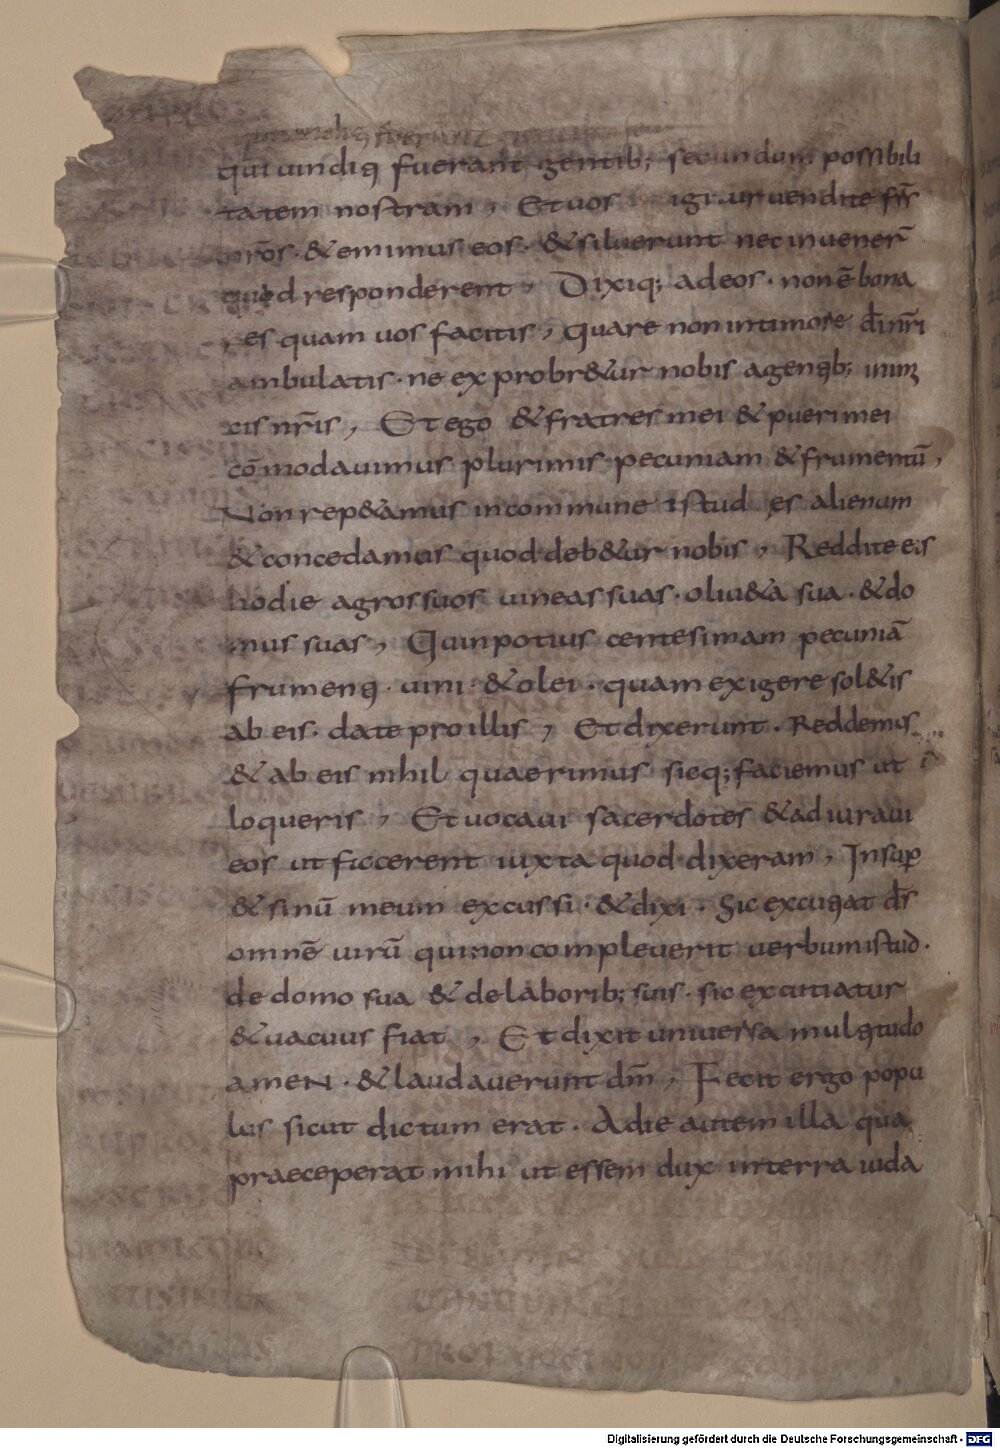 qui uindiq; fuerant gentib; secundum possibili
tatem nostram, Et uos igitur uendite frs
nrōs · & emimus eos · & siluerunt nec inuener̄
quid responderent, Dixiq; ad eos · non ē bona
res quam uos facitis, quare non in timore dī nr̄i
ambulatis · ne exprobr&ur nobis a gentib; inim
cis nr̄is, Et ego & fratres mei & pueri mei
cōmodauimus plurimis pecuniam & frumentū,
Non rep&amus in commune istud es alienum
& concedamus quod deb&ur nobis, Reddite eis
hodie agros suos uineas suas · oliu&a sua · & do
mus suas, Quin potius centesimam pecuniā
frumenti · uini · & olei · quam exigere sol&is
ab eis · date pro illis, Et dixerunt · Reddemus
& ab eis nihil quaerimus sicq; faciemus ut
loqueris, Et uocaui sacerdotes & adiuraui
eos ut facerent iuxta quod dixeram, Insup
& sinū meum excussi · & dixi · Sic excutiat ds̄
omnē uirū qui non compleuerit uerbum istud ·
de domo sua & de laborib; suis · sic excutiatur
& uacuus fiat, Et dixit uniuersa multitudo
amen · & laudauerunt dm̄, Fecit ergo popu
lus sicut dictum erat · A die autem illa qua
praeceperat mihi ut essem dux in terra iuda
Digitalisierung gefördert durch die Deutsche Forschungsgemeinschaft - DFG